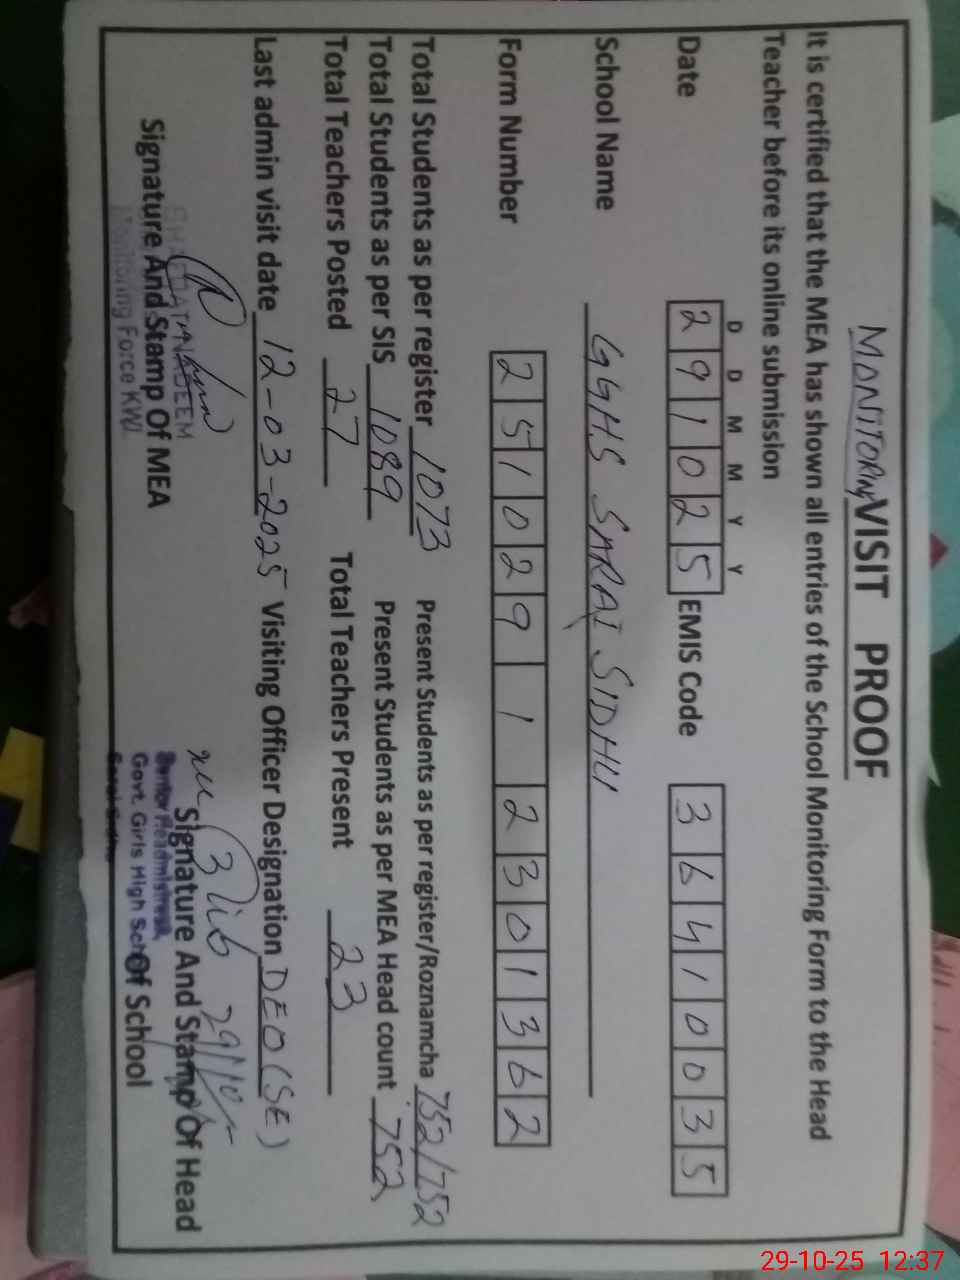 MONITORING VISIT PROOF
It is certified that the MEA has shown all entries of the School Monitoring Form to the Head
Teacher before its online submission
D D M M Y Y
Date 2 9 1 0 2 5 EMIS Code 3 6 4 1 0 0 3 5
School Name GGHS SARAI SIDHU
Form Number 2 5 1 0 2 9 1 2 3 0 1 3 6 2
Total Students as per register 1073 Present Students as per register/Roznamcha 752/752
Total Students as per SIS 1089 Present Students as per MEA Head count 752
Total Teachers Posted 27 Total Teachers Present 23
Last admin visit date 12-03-2025 Visiting Officer Designation DEO (SE)
Signature And Stamp Of MEA Signature And Stamp Of Head
Of School
NADEEM
Monitoring Force KWL
Senior Headmistress
Govt. Girls High School
29-10-25 12:37